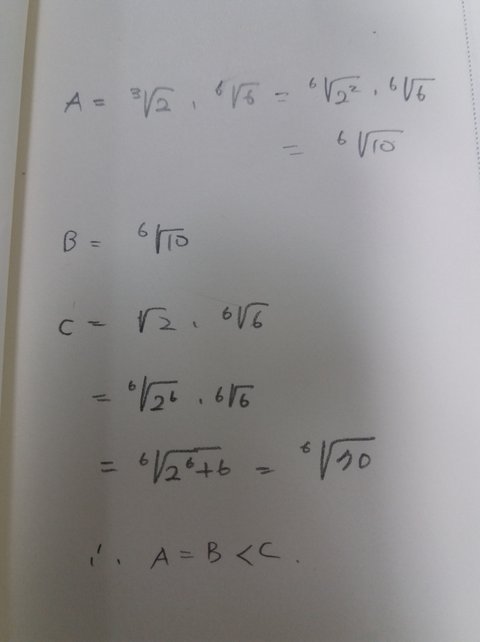 A = ³√2 · ⁶√6 = ⁶√2² · ⁶√6
= ⁶√10
B = ⁶√10
C = √2 · ⁶√6
= ⁶√2⁶ · ⁶√6
= ⁶√2⁶+6 = ⁶√70
∴ A = B < C.